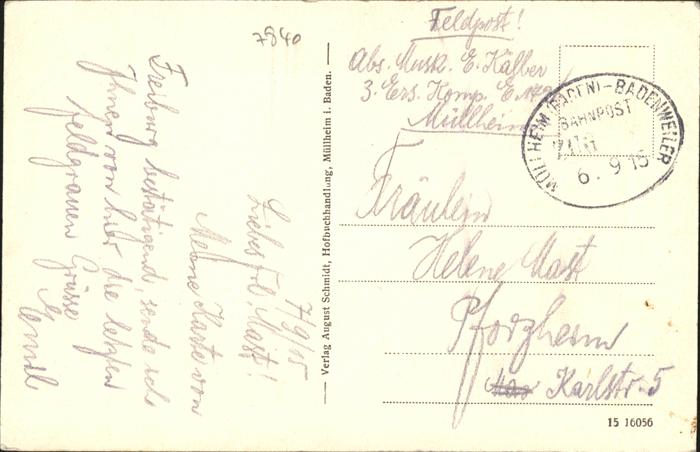 7840
Feldpost!
Abs. Musk. E. Kälber
3. Ers. Komp. E.
Müllheim
MÜLLHEIM (BADEN)-BADENWEILER
BAHNPOST
ZUG
6. 9 15
Fräulein
Helene Mast
Pforzheim
Karlstr. 5
15 16056
— Verlag August Schmidt, Hofbuchhandlung, Müllheim i. Baden. —
7/9/15
Liebes Frl. Mast!
Meine Karte von
Freiburg bestätigend, sende ich
Ihnen von hier die letzten
feldgrauen Grüsse
Emil